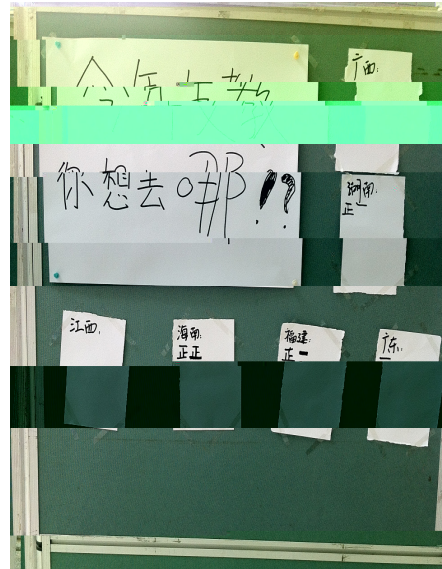 今年
你想去哪!?
广西:
湖南:
正一
江西:
海南:
正正
福建:
正一
广东:
一